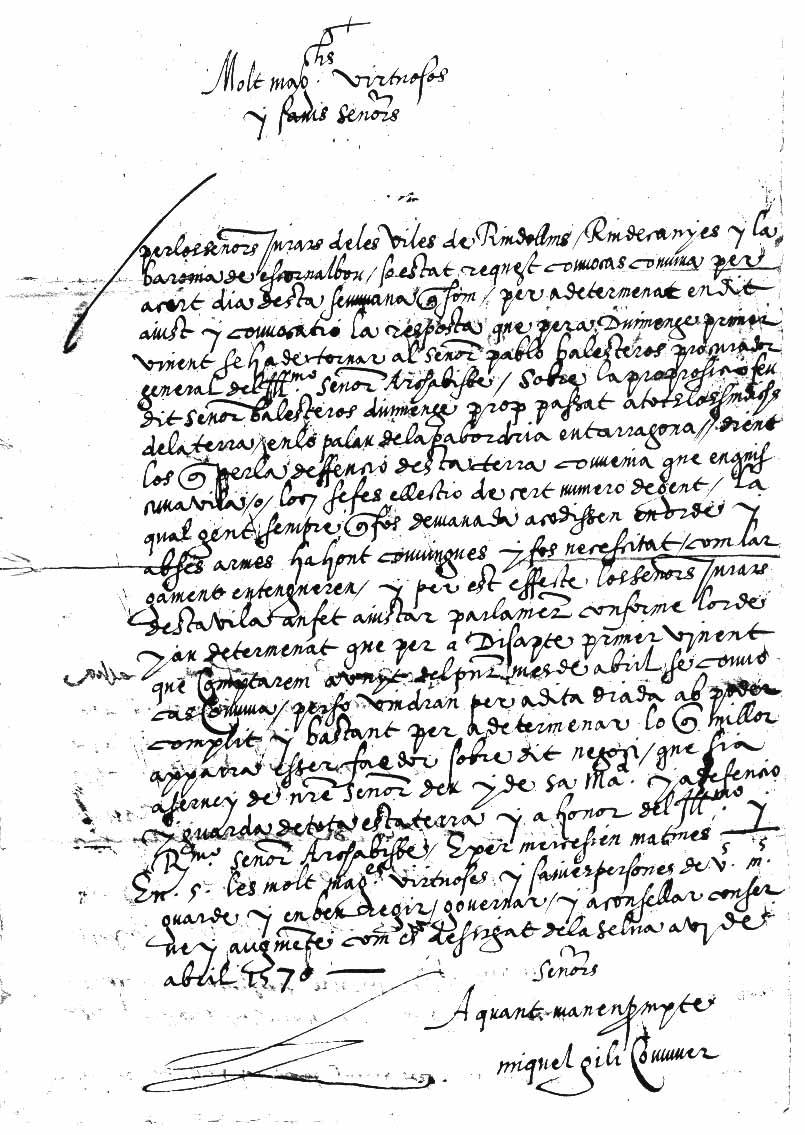 Molt magchs virtuosos
y savis señors
per los señors jurats de les viles de Riudolms / Riudecanyes y la
baronia de escornalbou / so estat request convocas comuna per
a cert dia desta semmana q som / per a determenar en dit
aiust y convocatio la resposta que pera Diumenge primer
vinent se ha de tornar al señor pablo balesteros procurador
general del Illmo señor Arcabisbe / sobre la proposicio feu
dit señor balesteros diumenge prop passat a tots los sindichs
de la terra / en lo palau de la pabordria en tarragona // dient
los q per la deffencio desta terra convenia que en quis
cuna vila / o / loch se fes ellectio de cert numero de gent / la
qual gent sempre q fos demanada acodissen en orde y
ab ses armes ha hont convingues y fos necessitat / com lar
gament entengueren / y per est effecte los señors jurats
desta vila an fet aiustar parlament conforme lorde
y an determenat que per a Disapte primer vinent
que Comptarem a vuyt del pnt mes de abril se convo
cas Comuna / perso vindran per a dita diada ab poder
complit y bastant per a determenar lo q millor
apparra esser faedor sobre dit negoci / que sia
a servey de nre señor deu y de sa Mad. y a defencio
y guarda de tota esta terra y a honor del Illmo y
Rmo señor Arcabisbe / E per merces en matines
En. s. les molt mages virtuoses y savies persones de v. m.
guarde y en ben regir / governar / y aconsellar conser
ve y augmente com es desitgat de la selva a vj de
abril 1570
señors
A quant manen prompte
miquel gili Conner